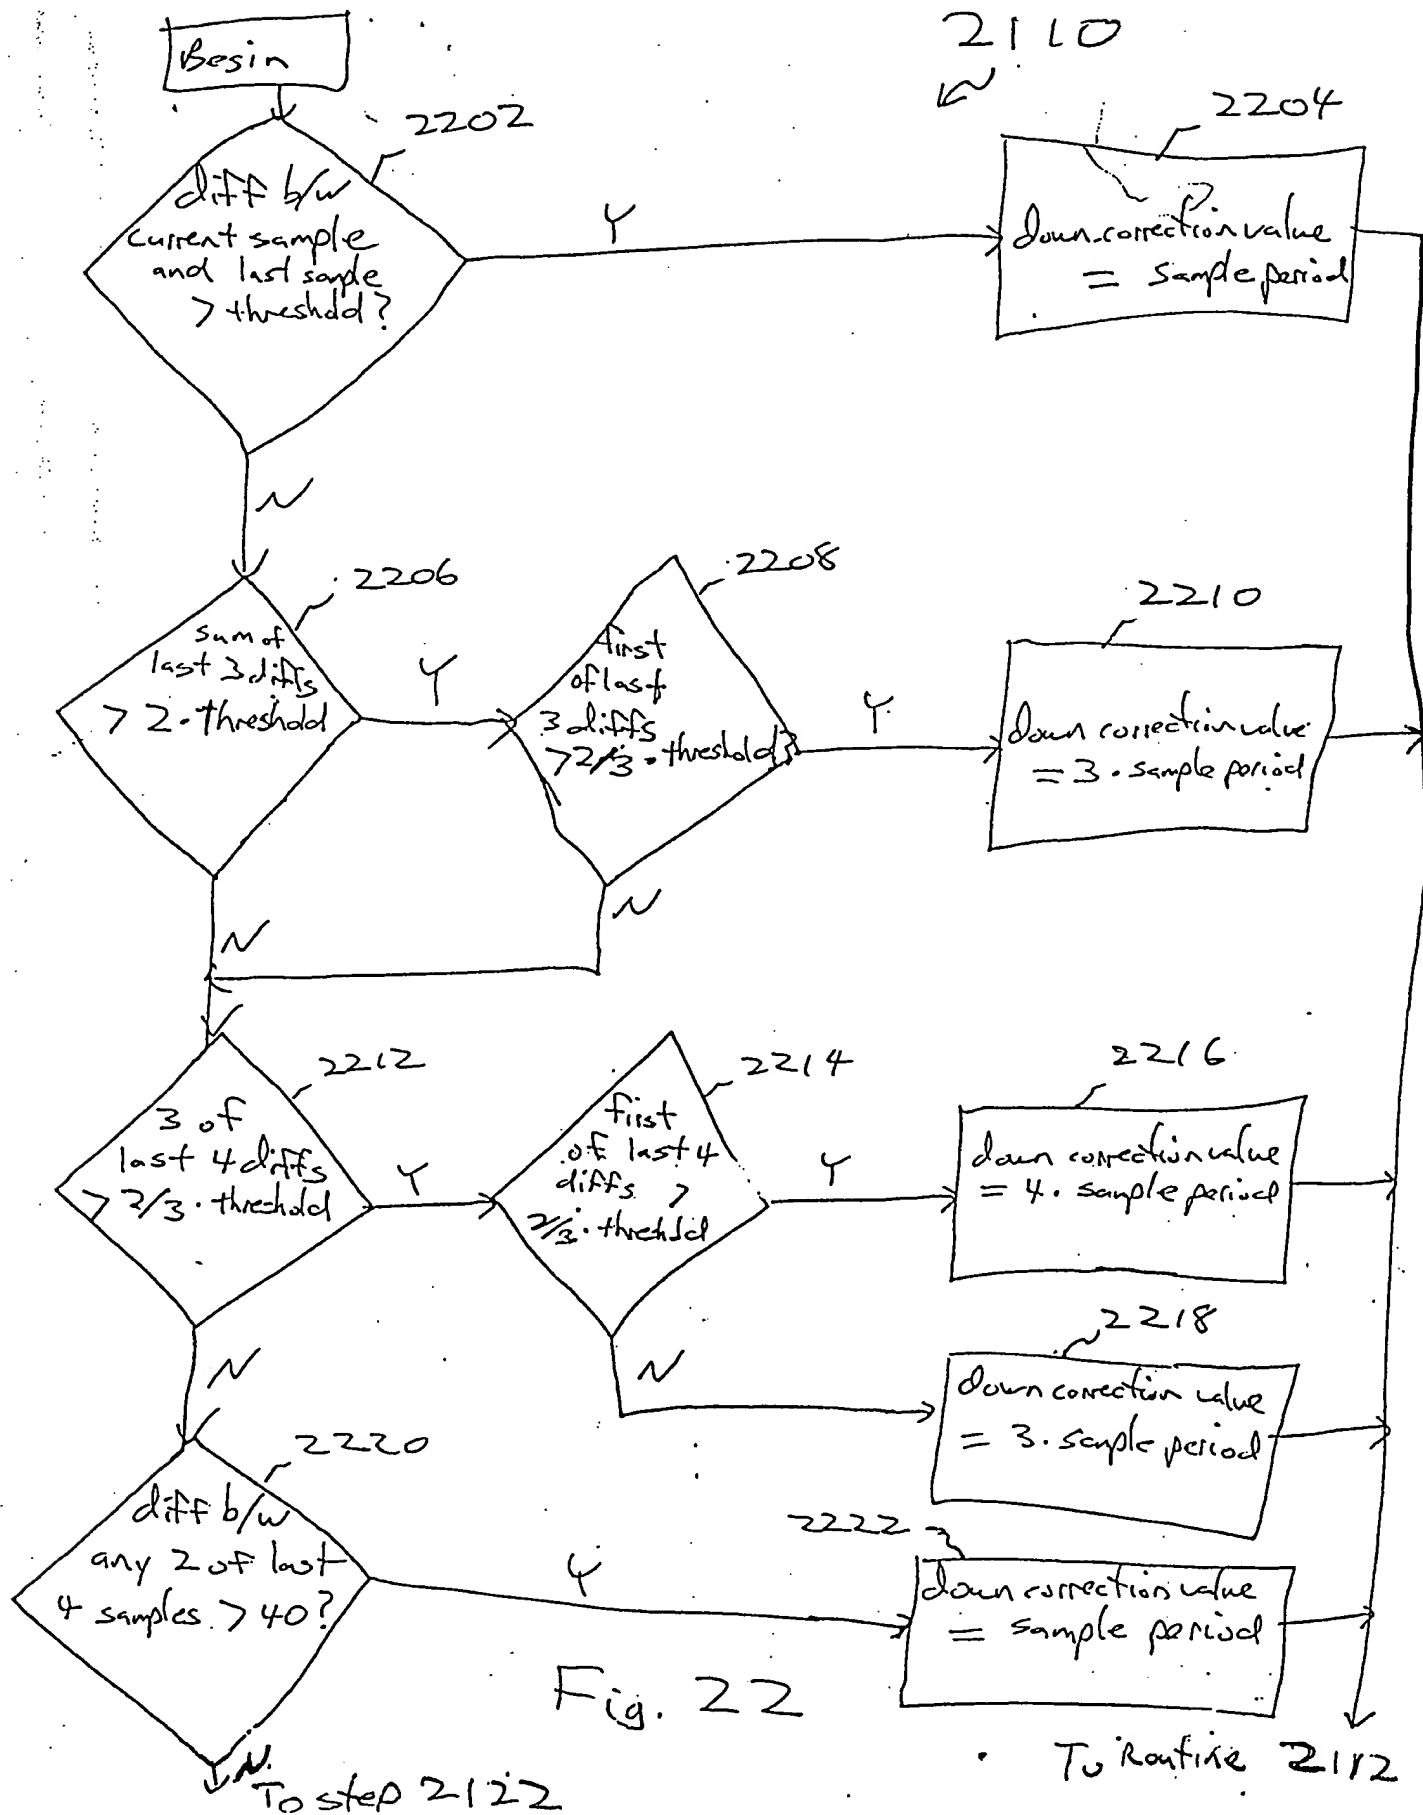 2110
Begin
2202
diff b/w
current sample
and last sample
> threshold?
Y
2204
down correction value
= sample period
N
2206
sum of
last 3 diffs
> 2 · threshold
Y
2208
first
of last
3 diffs
> 2/3 · threshold?
Y
2210
down correction value
= 3 · sample period
N
N
2212
3 of
last 4 diffs
> 2/3 · threshold
Y
2214
first
of last 4
diffs >
2/3 · threshold
Y
2216
down correction value
= 4 · sample period
N
2218
down correction value
= 3 · sample period
N
2220
diff b/w
any 2 of last
4 samples > 40?
Y
2222
down correction value
= sample period
Fig. 22
N
To step 2122
To Routine 2112